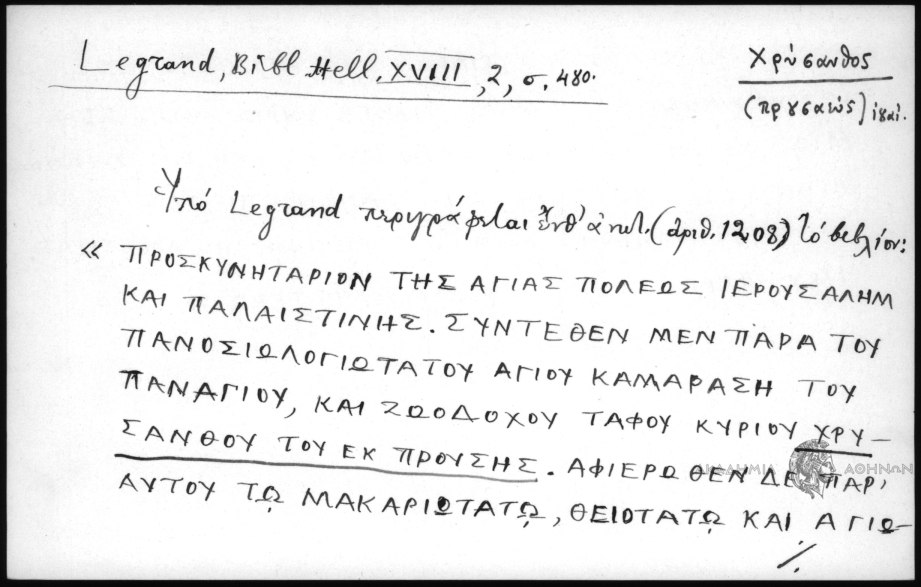 Legrand, Bibl. Hell. XVIII, 2, σ. 480.
Χρύσανθος
(Προυσαεύς)
Ὑπό Legrand περιγράφεται (ἀριθ. 1208) τό βιβλίον:
« ΠΡΟΣΚΥΝΗΤΑΡΙΟΝ ΤΗΣ ΑΓΙΑΣ ΠΟΛΕΩΣ ΙΕΡΟΥΣΑΛΗΜ
ΚΑΙ ΠΑΛΑΙΣΤΙΝΗΣ. ΣΥΝΤΕΘΕΝ ΜΕΝ ΠΑΡΑ ΤΟΥ
ΠΑΝΟΣΙΩΛΟΓΙΩΤΑΤΟΥ ΑΓΙΟΥ ΚΑΜΑΡΑΣΗ ΤΟΥ
ΠΑΝΑΓΙΟΥ, ΚΑΙ ΖΩΟΔΟΧΟΥ ΤΑΦΟΥ ΚΥΡΙΟΥ ΧΡΥ–
ΣΑΝΘΟΥ ΤΟΥ ΕΚ ΠΡΟΥΣΗΣ. ΑΦΙΕΡΩΘΕΝ ΔΕ ΠΑΡ'
ΑΚΑΔΗΜΙΑ ΑΘΗΝΩΝ
ΑΥΤΟΥ ΤΩ ΜΑΚΑΡΙΩΤΑΤΩ, ΘΕΙΟΤΑΤΩ ΚΑΙ ΑΓΙΩ–
./.